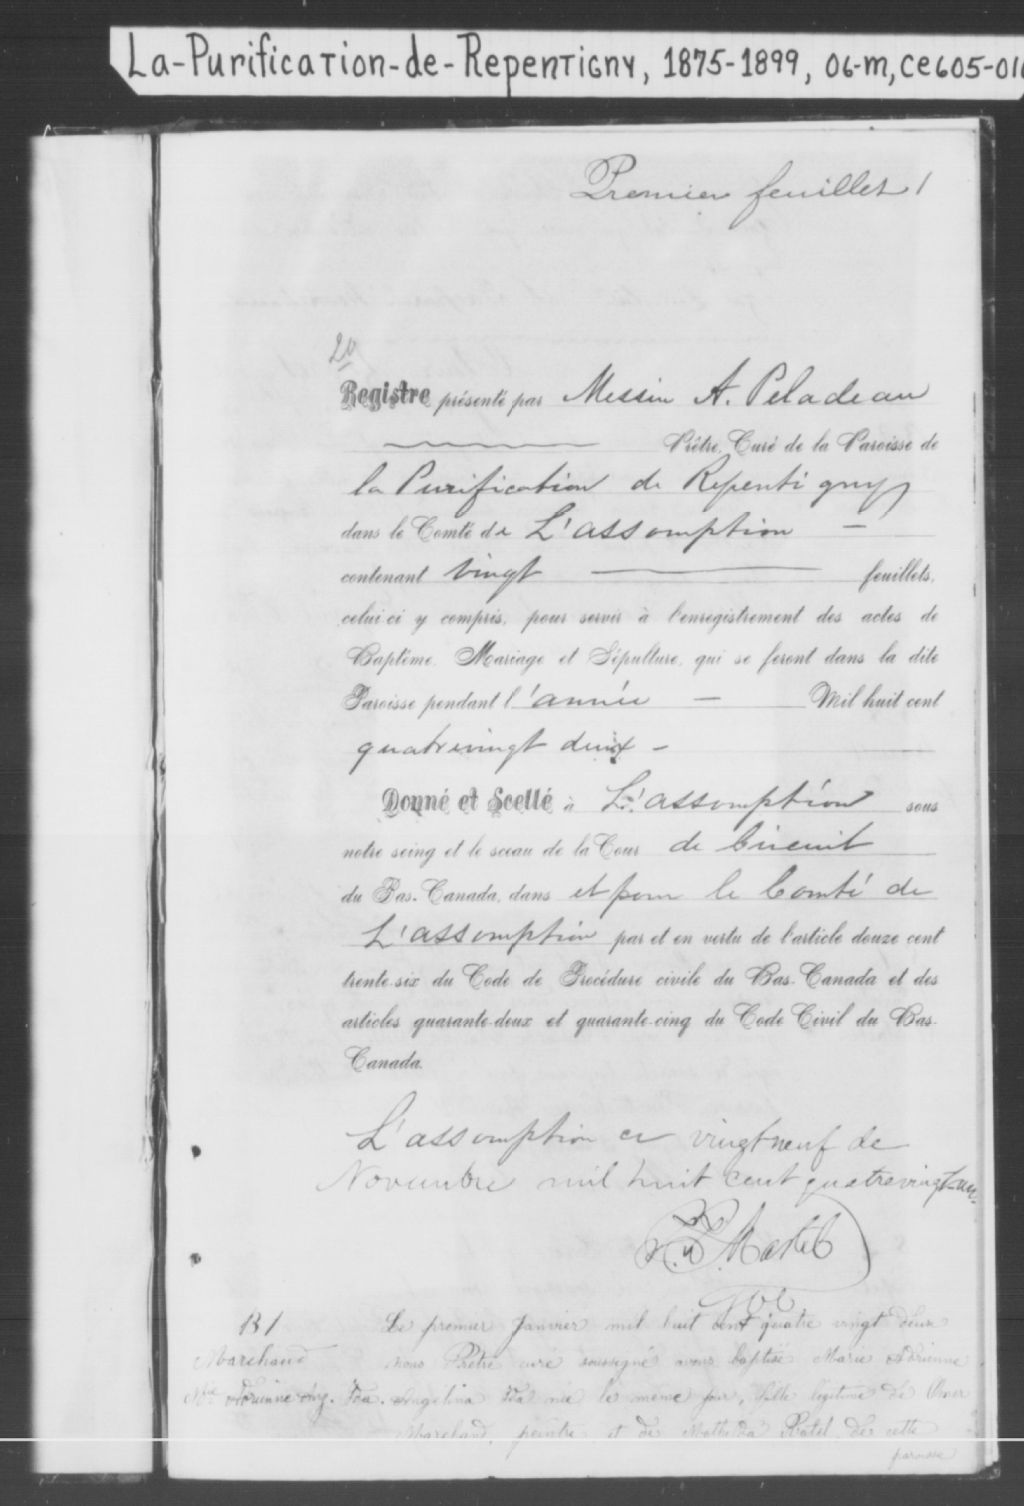 La-Purification-de-Repentigny, 1875-1899, 06-m, ce605-016
Premier feuillet 1
20
Registre présenté par Messire A. Peladeau
Prêtre, Curé de la Paroisse de
la Purification de Repentigny
dans le Comté de L'assomption —
contenant vingt — feuillets,
celui-ci y compris, pour servir à l'enregistrement des actes de
Baptême, Mariage et Sépulture, qui se feront dans la dite
Paroisse pendant l'année — Mil huit cent
quatrevingt deux -
Donné et Scellé à L'assomption sous
notre seing et le sceau de la Cour de Circuit
du Bas-Canada, dans et pour le Comté de
L'assomption par et en vertu de l'article douze cent
trente-six du Code de Procédure civile du Bas-Canada et des
articles quarante-deux et quarante-cinq du Code Civil du Bas-
Canada.
L'assomption ce vingtneuf de
Novembre mil huit cent quatrevingt-un.
Martel
B1
Le premier Janvier mil huit cent quatre vingt deux
Marchand
nous Prêtre curé soussigné avons baptisé Marie Adrienne
Mie Adrienne Ang. Ida. Angelina Ida née le même jour, fille légitime de Omer
Marchand, peintre et de Mathilda Ratel de cette
paroisse